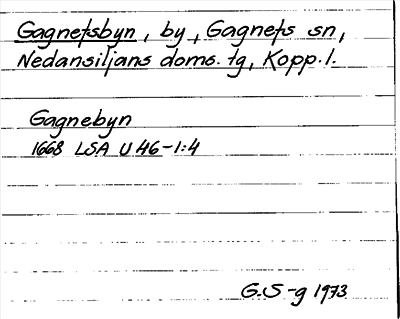 Gagnefsbyn, by, Gagnefs sn,
Nedansiljans doms. tg, Kopp. l.
Gagnebyn
1668 LSA U 46-1:4
G.S-g 1973